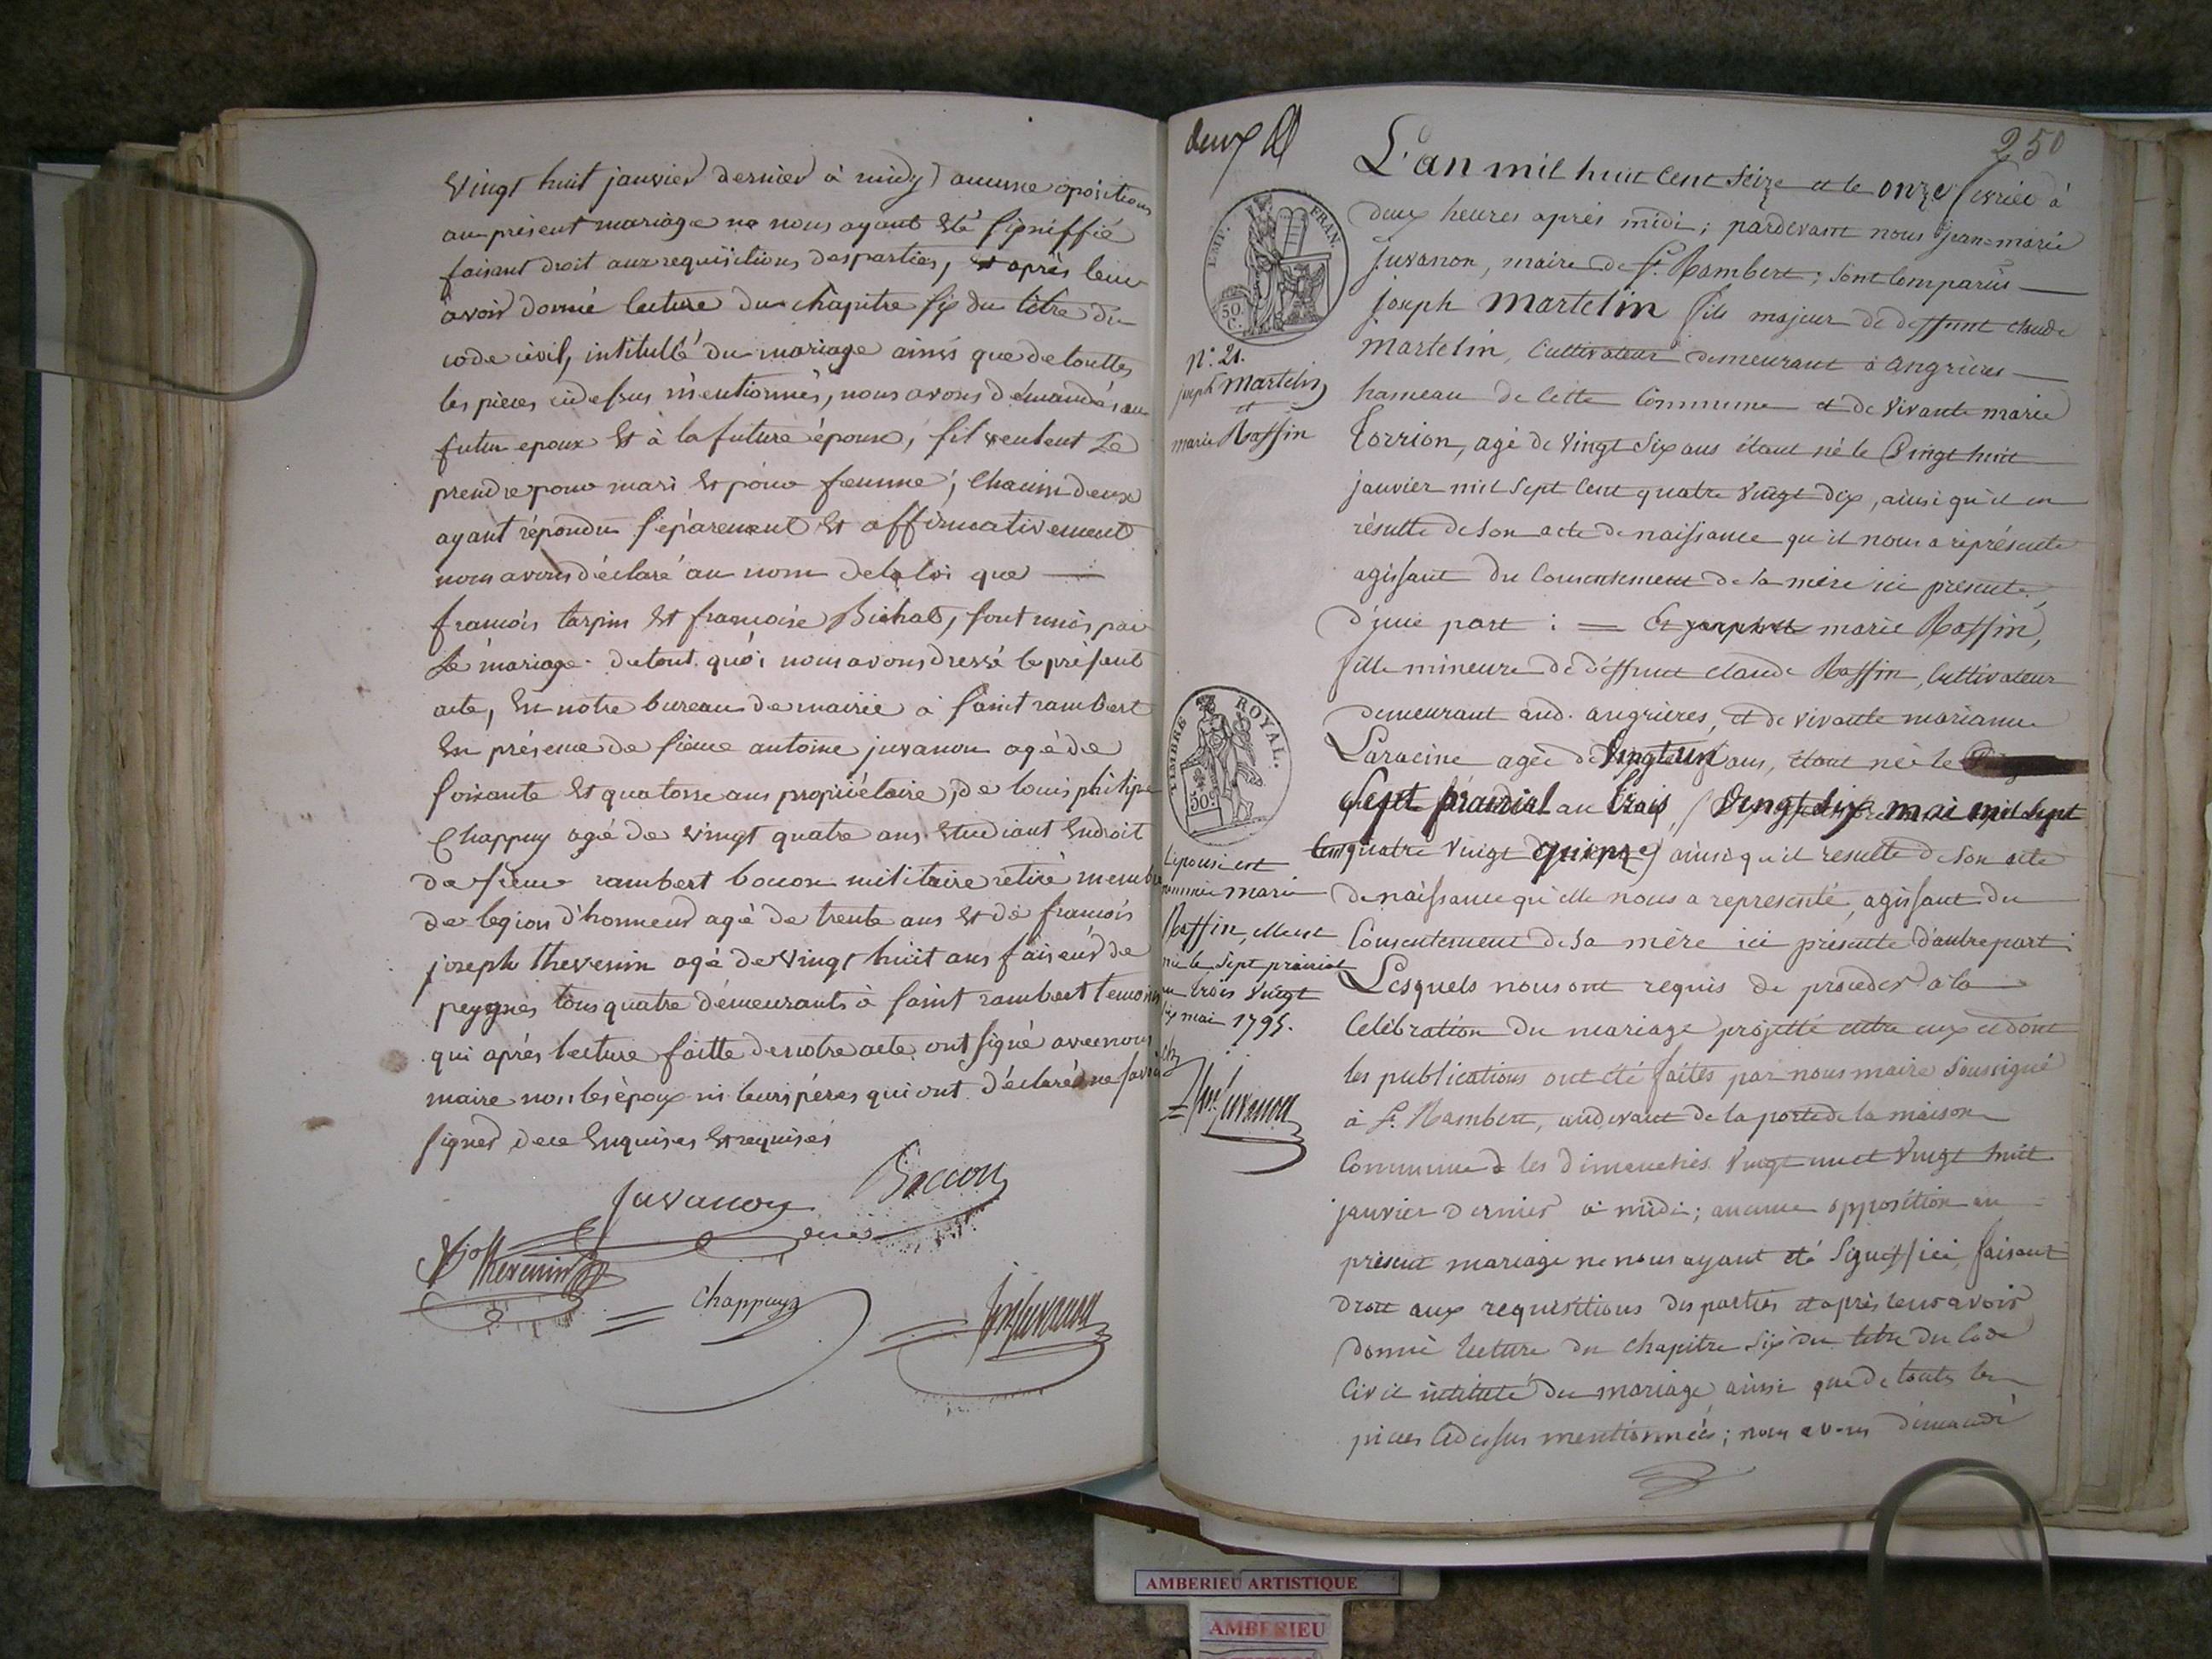 Vingt huit janvier dernier à midy) aucune opositions
au présent mariage ne nous ayant Eté signiffié
faisant droit aux requisitions des parties, Et après leur
avoir donné lecture du chapitre six du titre du
code civil, intitullé du mariage ainsi que de touttes
les pièces cidessus mentionnés, nous avons démandés au
futur epoux Et à la future épouse, s'il veulent Se
prendre pour mari Et pour femme, Chacun deux
ayant répondu séparement Et affirmativement
nous avons déclaré au nom de la loi que —
francois tarpin Et françoise Bichat, sont unis par
Le mariage. du tout quoi nous avons dressé le présent
acte, En notre bureau de mairie à saint rambert
En présence de sieur antoine juvanon agé de
soixante Et quatorse ans propriétaire, de louis philipe
Chappuy agé de vingt quatre ans Etudiant Endroit
de sieur rambert bocon militaire retiré membre
de legion d'honneur agé de trente ans Et de francois
joseph thevenin agé de Vingt huit ans faiseur de
peygnes tous quatre démeurants à saint rambert temoins
qui après lecture faitte de notre acte ont signé avec nous
maire non les époux ni leurs péres qui ont déclaré ne savoir
signer de ce Enquises Et requises
Juvanon
Boccon
thevenin
Chappuy
Jm Juvanon
deux
250
L'an mil huit cent Seize et le onze fevrier à
deux heures après midi; pardevant nous jean-marie
juvanon, maire de St. Rambert; sont Comparûs —
joseph Martelin fils majeur de deffunt claude
Martelin, Cultivateur demeurant à angrières —
hameau de cette Commune et de vivante marie
Torrion, agé de vingt six ans étant né le Vingt huit
janvier mil sept cent quatre vingt dix, ainsi qu'il en
résulte de son acte de naissance qu'il nous a réprésenté
agissant du Consentement de sa mère ici presente,
d'une part : = Et marie Raffin,
fille mineure de déffunt claude Raffin, Cultivateur
demeurant aud. angrières, et de vivante marianne
Laracine agée de Vingt un ans, étant née le
Sept prairial an trois, (Vingt six mai mil sept
cent quatre Vingt quinze) ainsi qu'il resulte de son acte
de naissance qu'elle nous a representé, agissant du
Consentement de sa mère ici présente d'autre part.
Lesquels nous ont requis de proceder à la
Celébration du mariage projetté entre eux et dont
les publications ont été faites par nous maire soussigné
à St. Rambert, audevant de la porte de la maison
Commune les dimanches Vingt un et Vingt huit
janvier dernier à midi; aucune opposition au
présent mariage ne nous ayant été signiffiée, faisant
droit aux requisitions des parties et après leur avoir
donné lecture du chapitre six du titre du Code
Civil intitulé du mariage, ainsi que de toutes les
pièces Cidessus mentionnées; nous avons démandé
EMP. FRAN.
50
C.
N°. 21.
joseph Martelin
et
marie Raffin
TIMBRE ROYAL.
50c
L'epouse est
nommée marie
Raffin, elle est
née le sept prairial
an trois Vingt
six mai 1795.
Jm Juvanon
AMBERIEU ARTISTIQUE
AMBERIEU